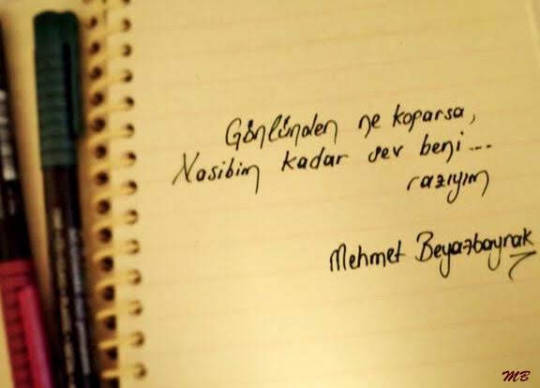 Gönlünden ne koparsa,
Nasibim kadar sev beni...
razıyım
Mehmet Beyazbayrak
MB